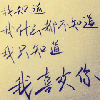 我知道
我什么都不知道
我只知道
我喜欢你